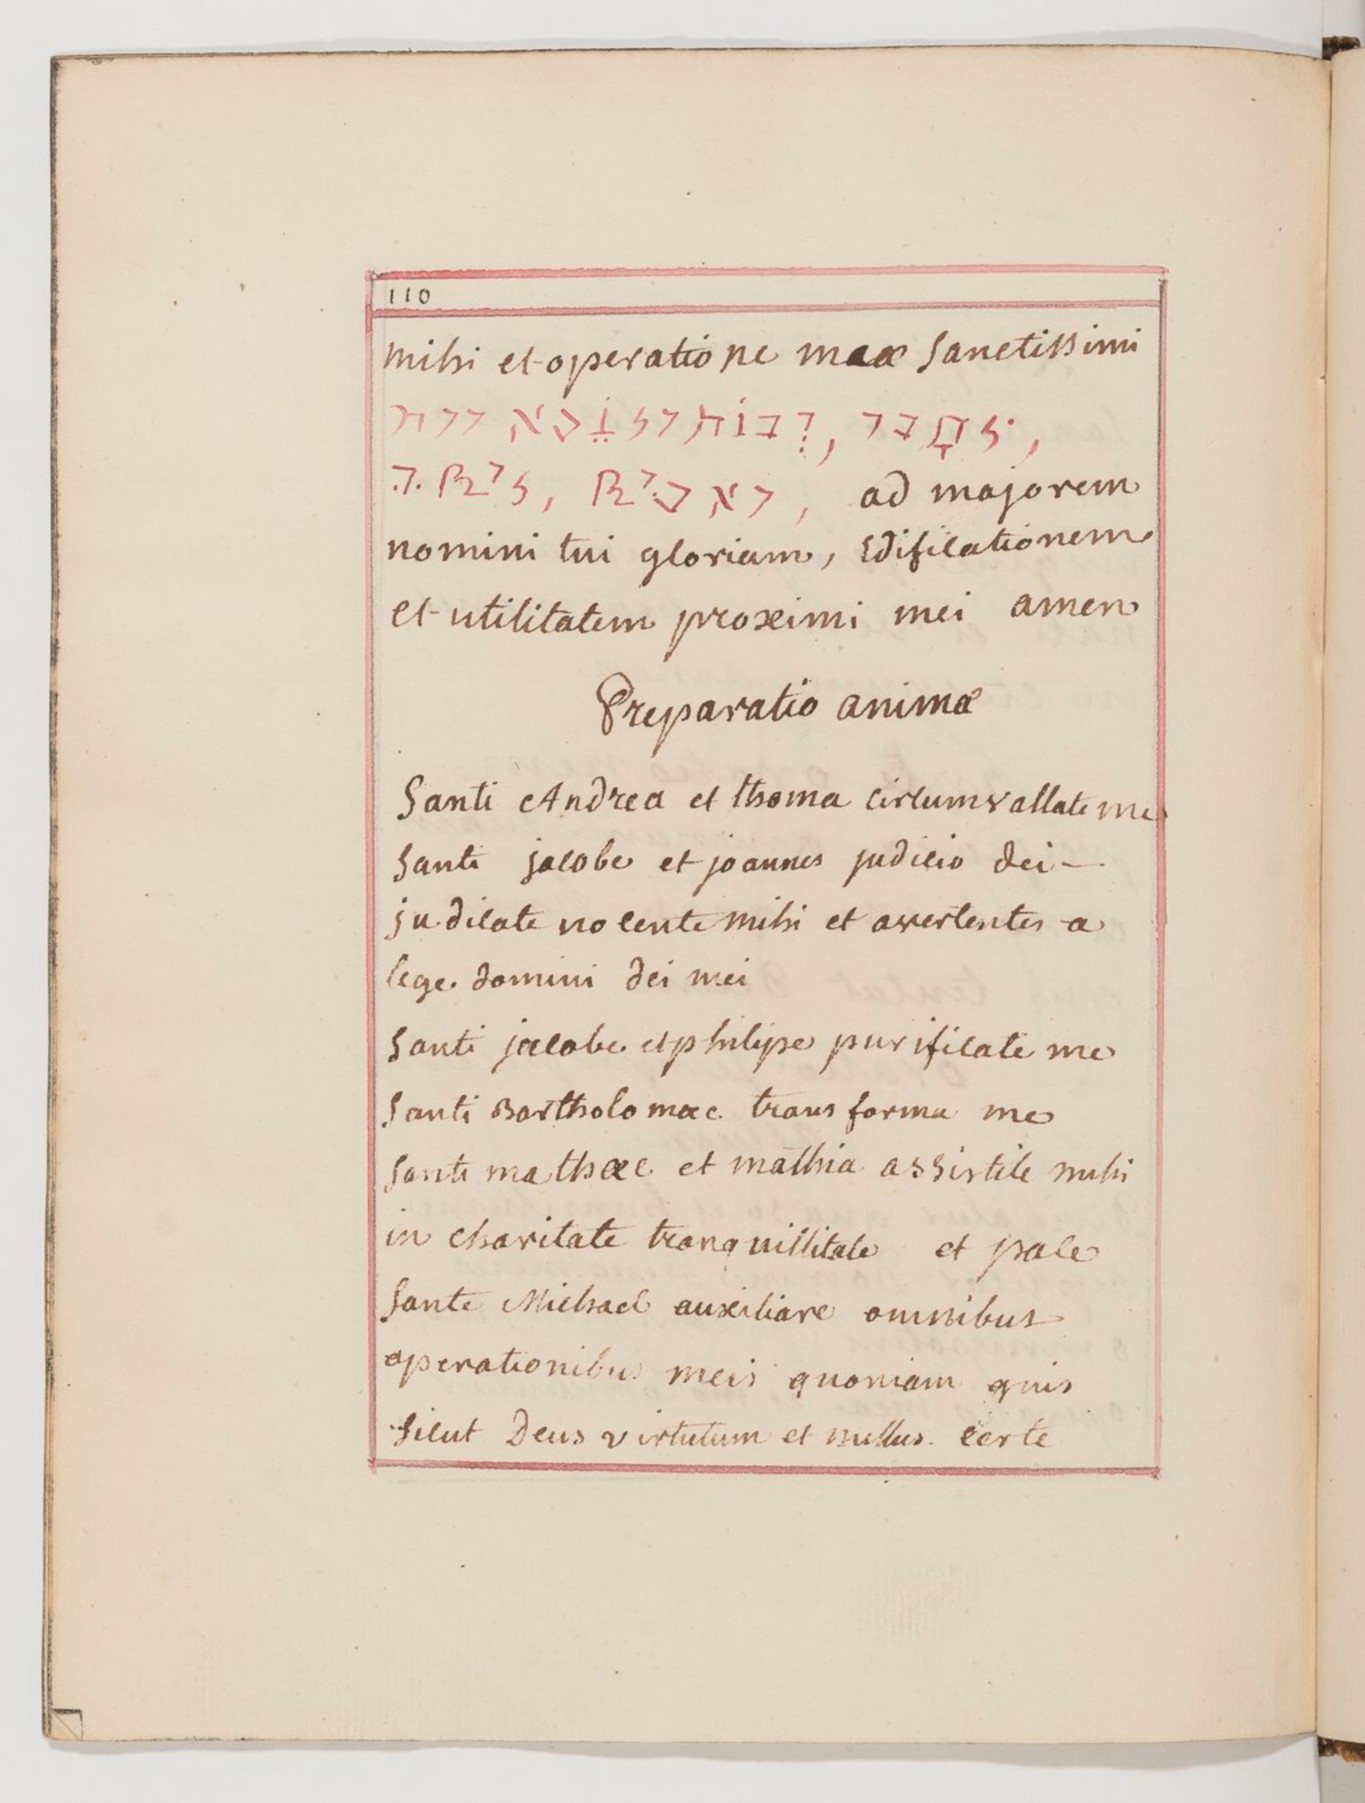 110
mihi et operatione meæ sanctissimi
ad majorem
nomini tui gloriam, edificationem
et utilitatem proximi mei amen
Preparatio animæ
Santi Andrea et thoma circumvallate me
Santi jacobe et joannes judicio dei
judicate nocente mihi et avertentes a
lege domini dei mei
Santi jacobe et philipe purificate me
Santi Bartholomæe transforma me
Santi mathæe et mathia assistite mihi
in charitate tranquillitate et pace
Sante Michael auxiliare omnibus
operationibus meis quoniam quis
sicut Deus virtutum et nullus certe